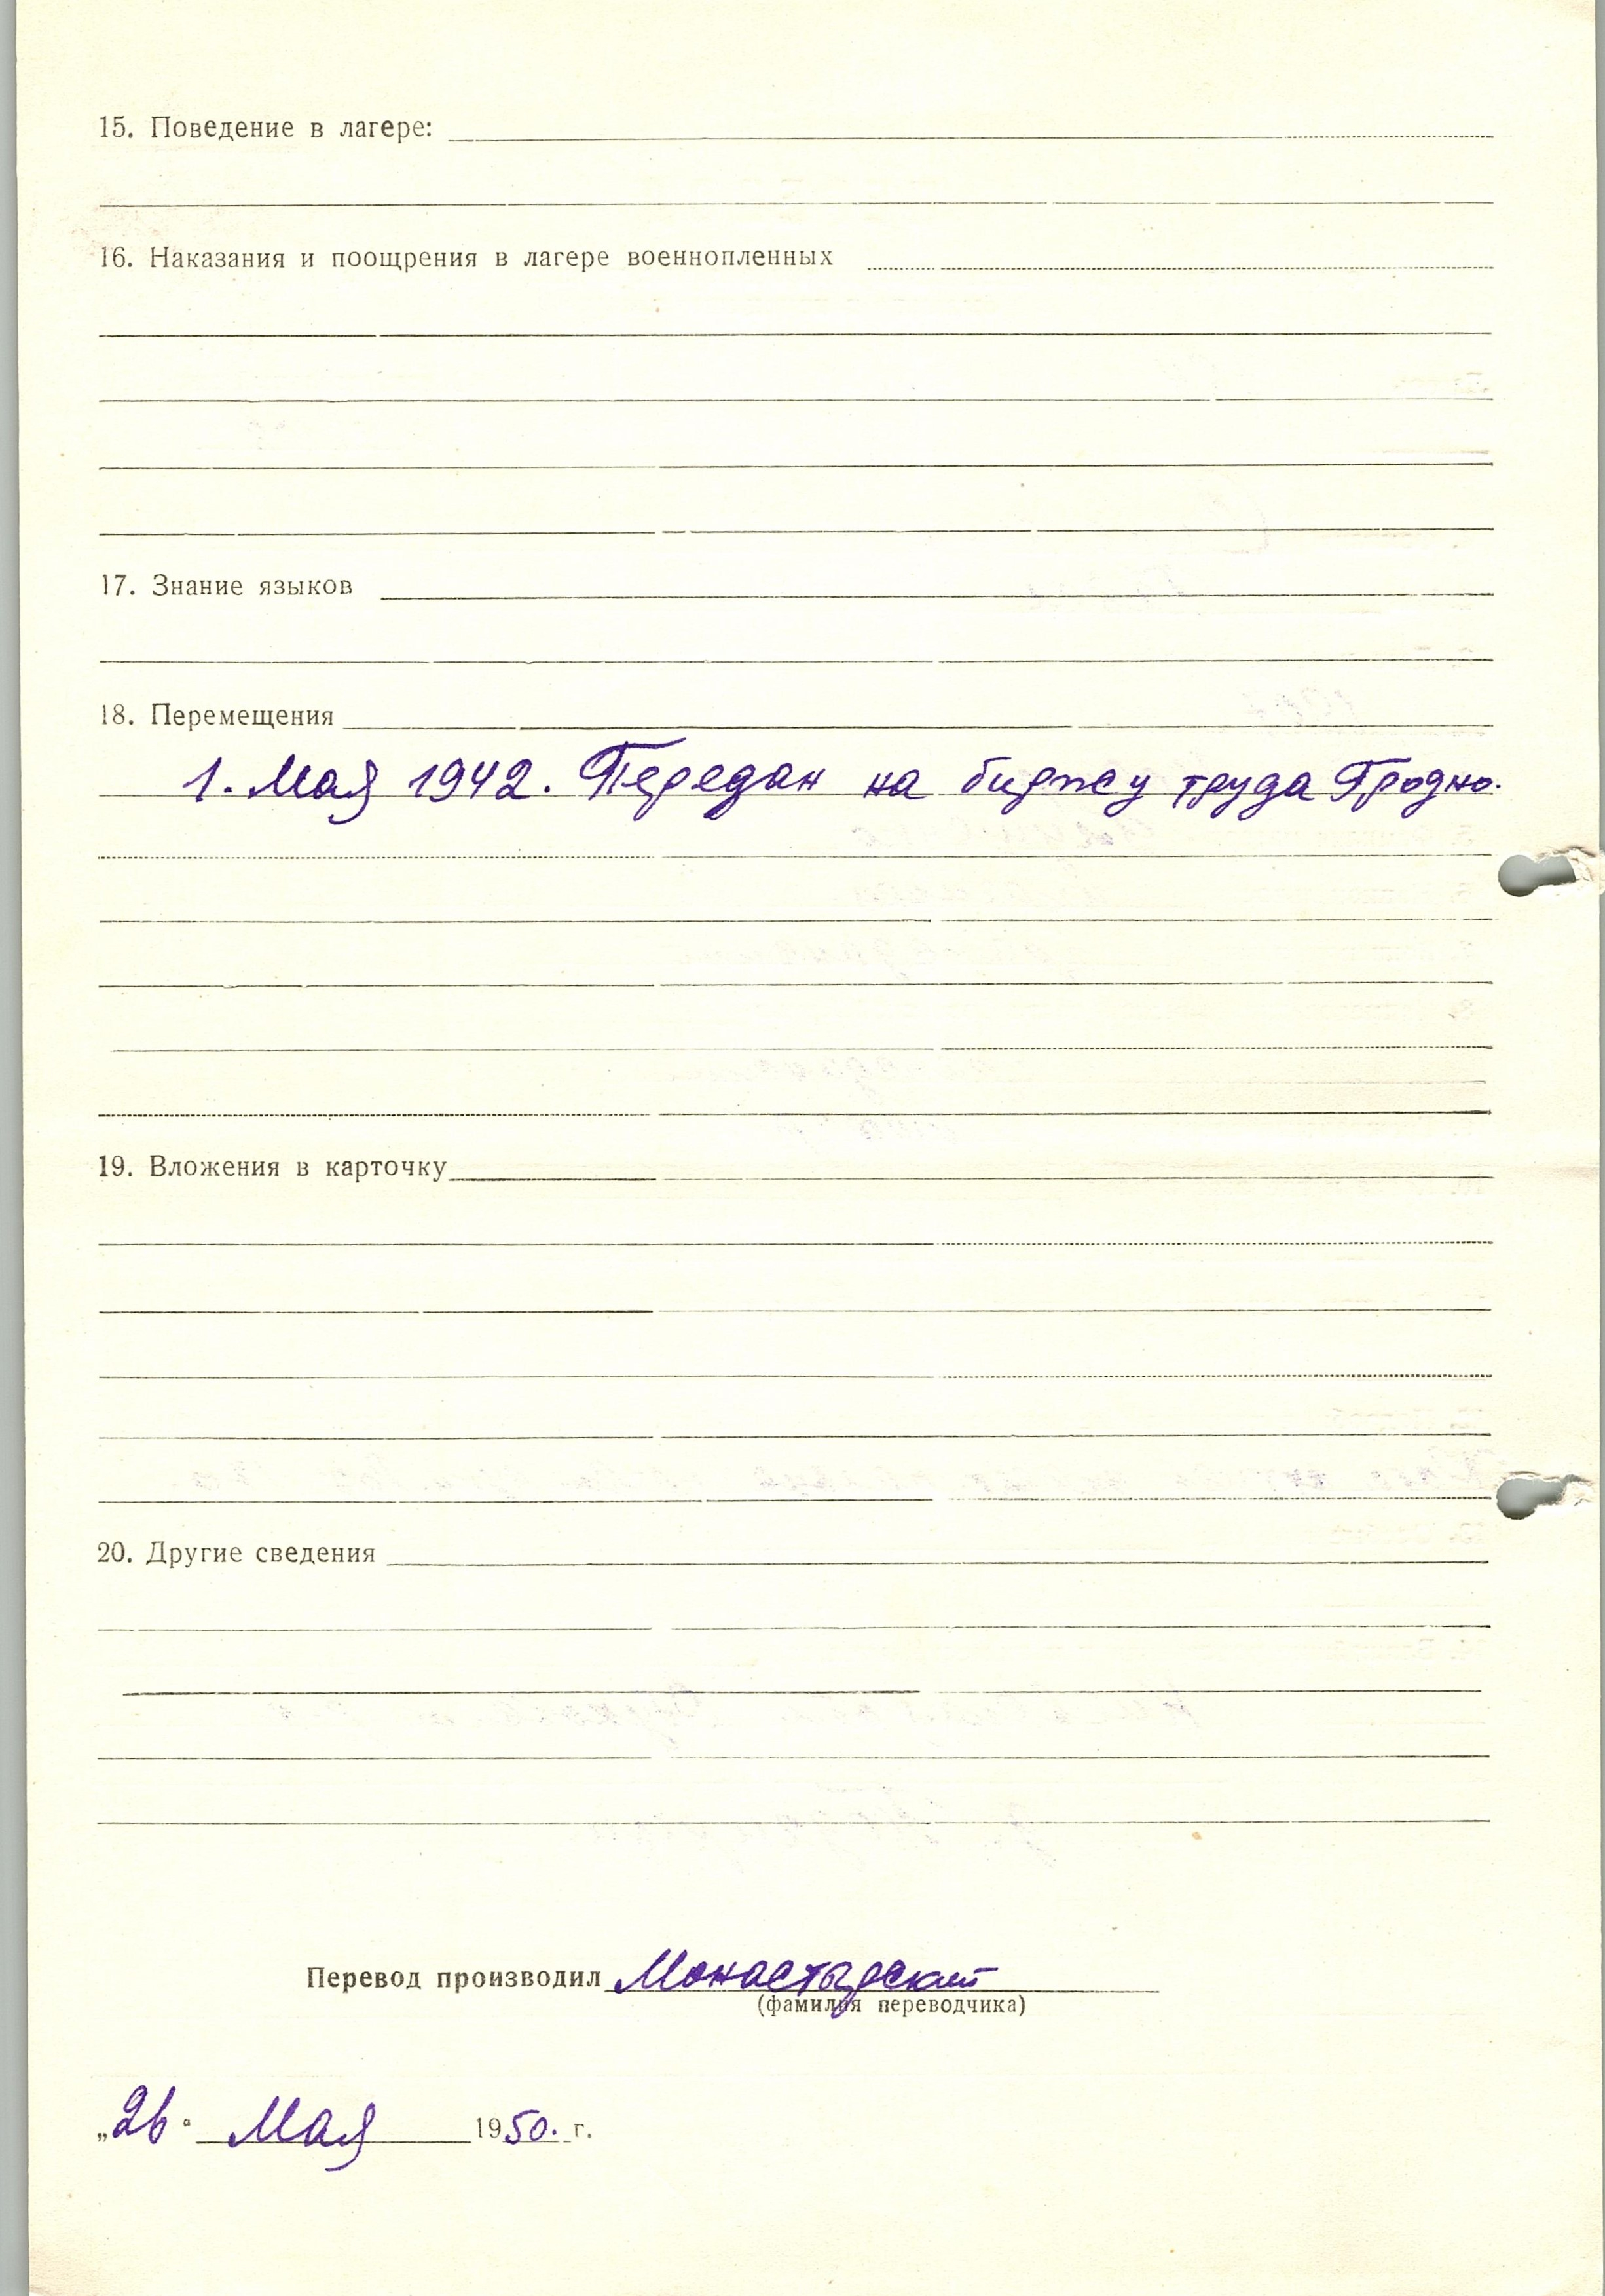 15. Поведение в лагере:
16. Наказания и поощрения в лагере военнопленных
17. Знание языков
18. Перемещения
1. Мая 1942. Передан на биржу труда Гродно.
19. Вложения в карточку
20. Другие сведения
Перевод производил Монастырский
(фамилия переводчика)
„26“ Мая 1950. г.